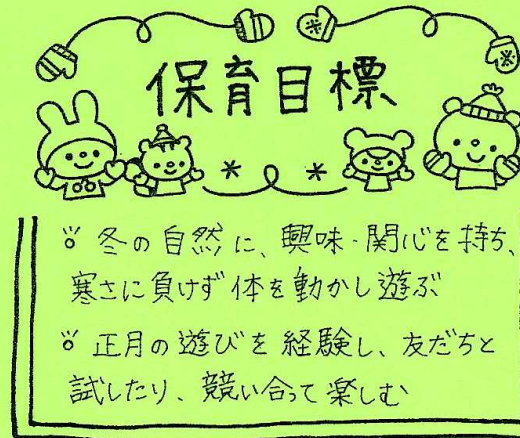 保育目標
冬の自然に、興味・関心を持ち、
寒さに負けず体を動かし遊ぶ
正月の遊びを経験し、友だちと
試したり、競い合って楽しむ